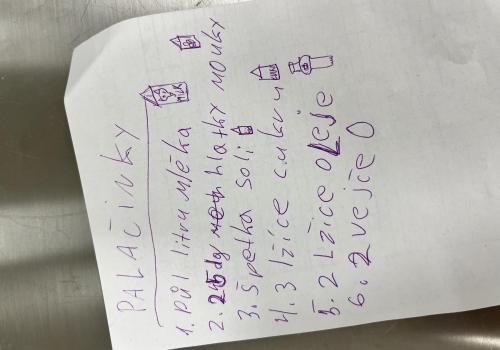 PALAČINKY
1. půl litru mléka MILK
2. 25dg hlatky mouky
3. špetka soli
4. 3 lžíce cukru
5. 2 lžíce oleje
6. 2 vejce